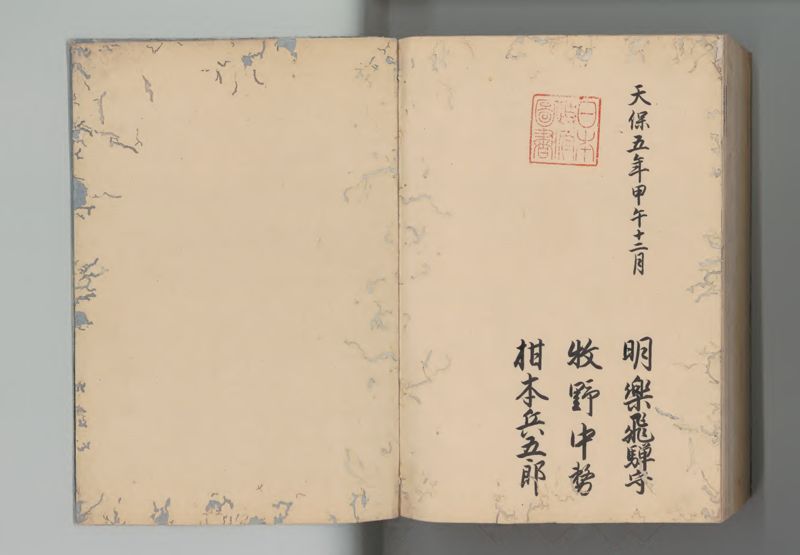 天保五年甲午十二月
日本
政府
圖書
明樂飛驒守
牧野中務
柑本兵五郎